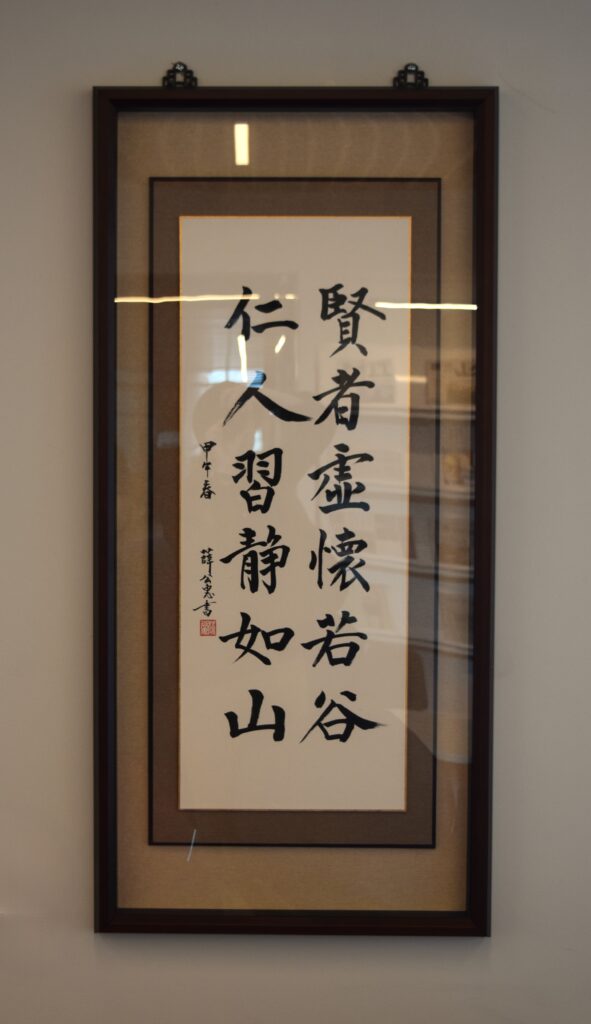 賢者虛懷若谷
仁人習静如山
甲午春
薛公惠書